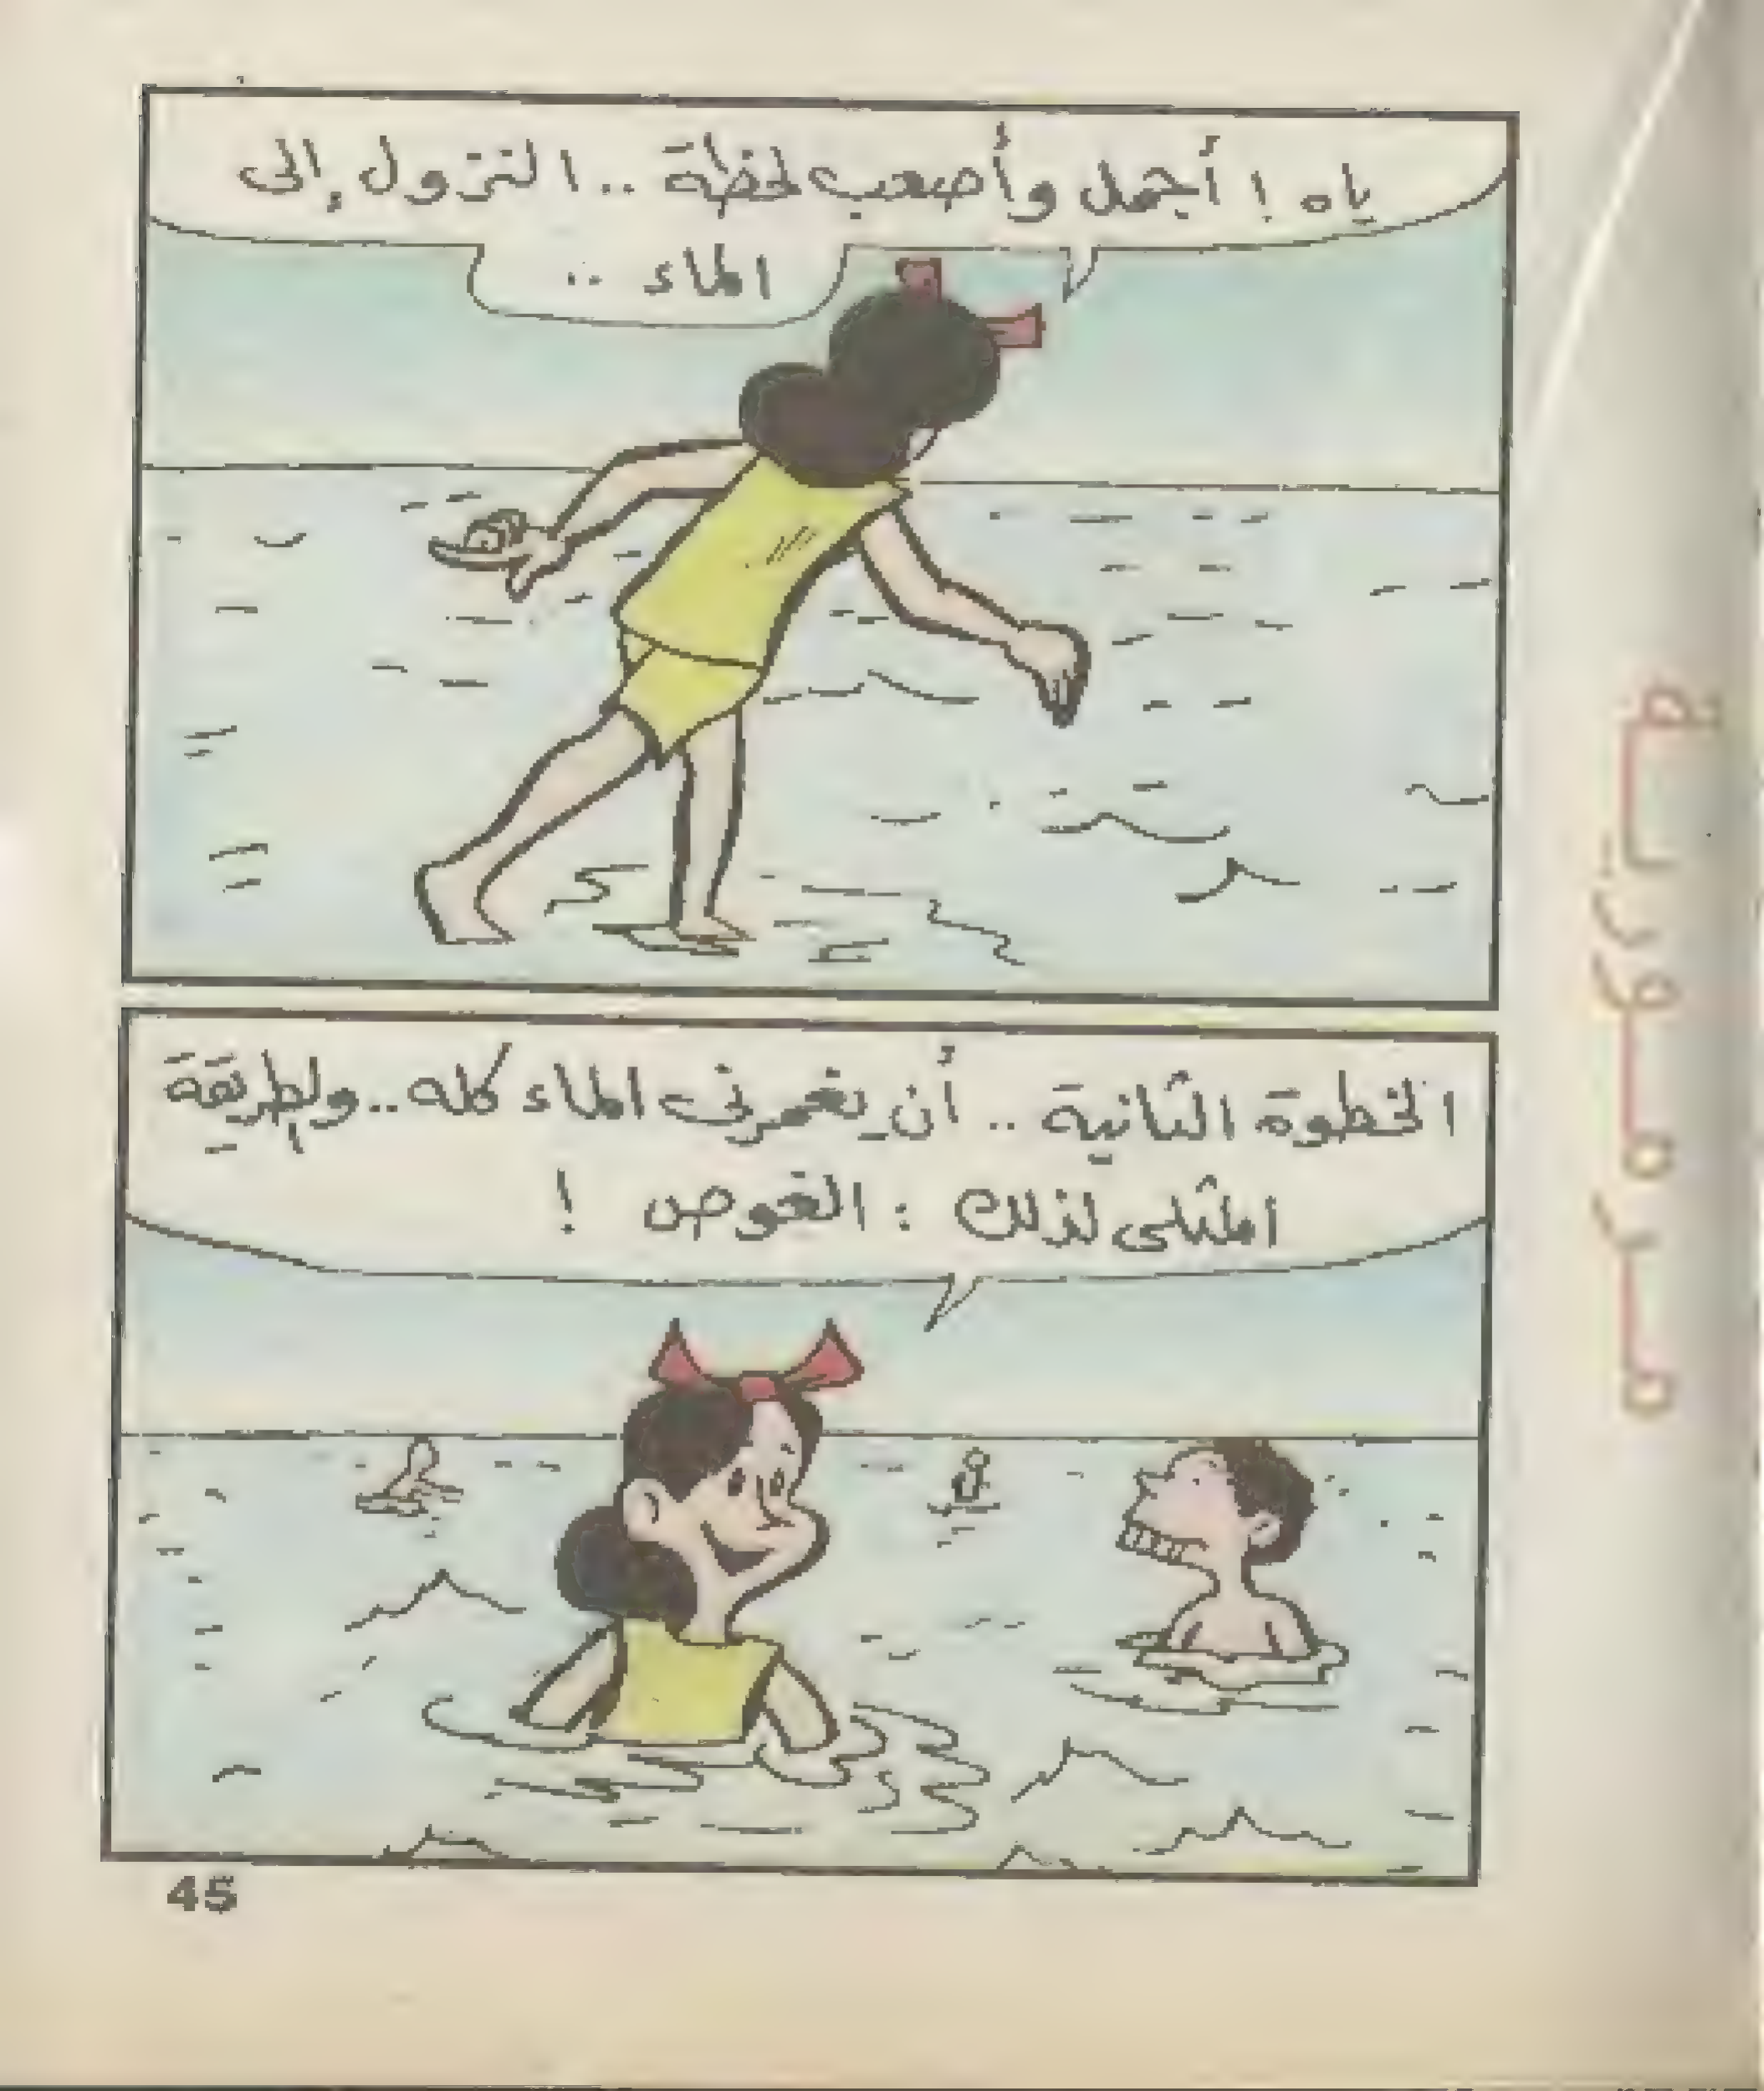 ياه ! أجمل وأصعب لحظة .. النزول إلى
الماء ..
الخطوة الثانية .. أن يغمرنى الماء كله .. والطريقة
المثلى لذلك : الغوص !
45